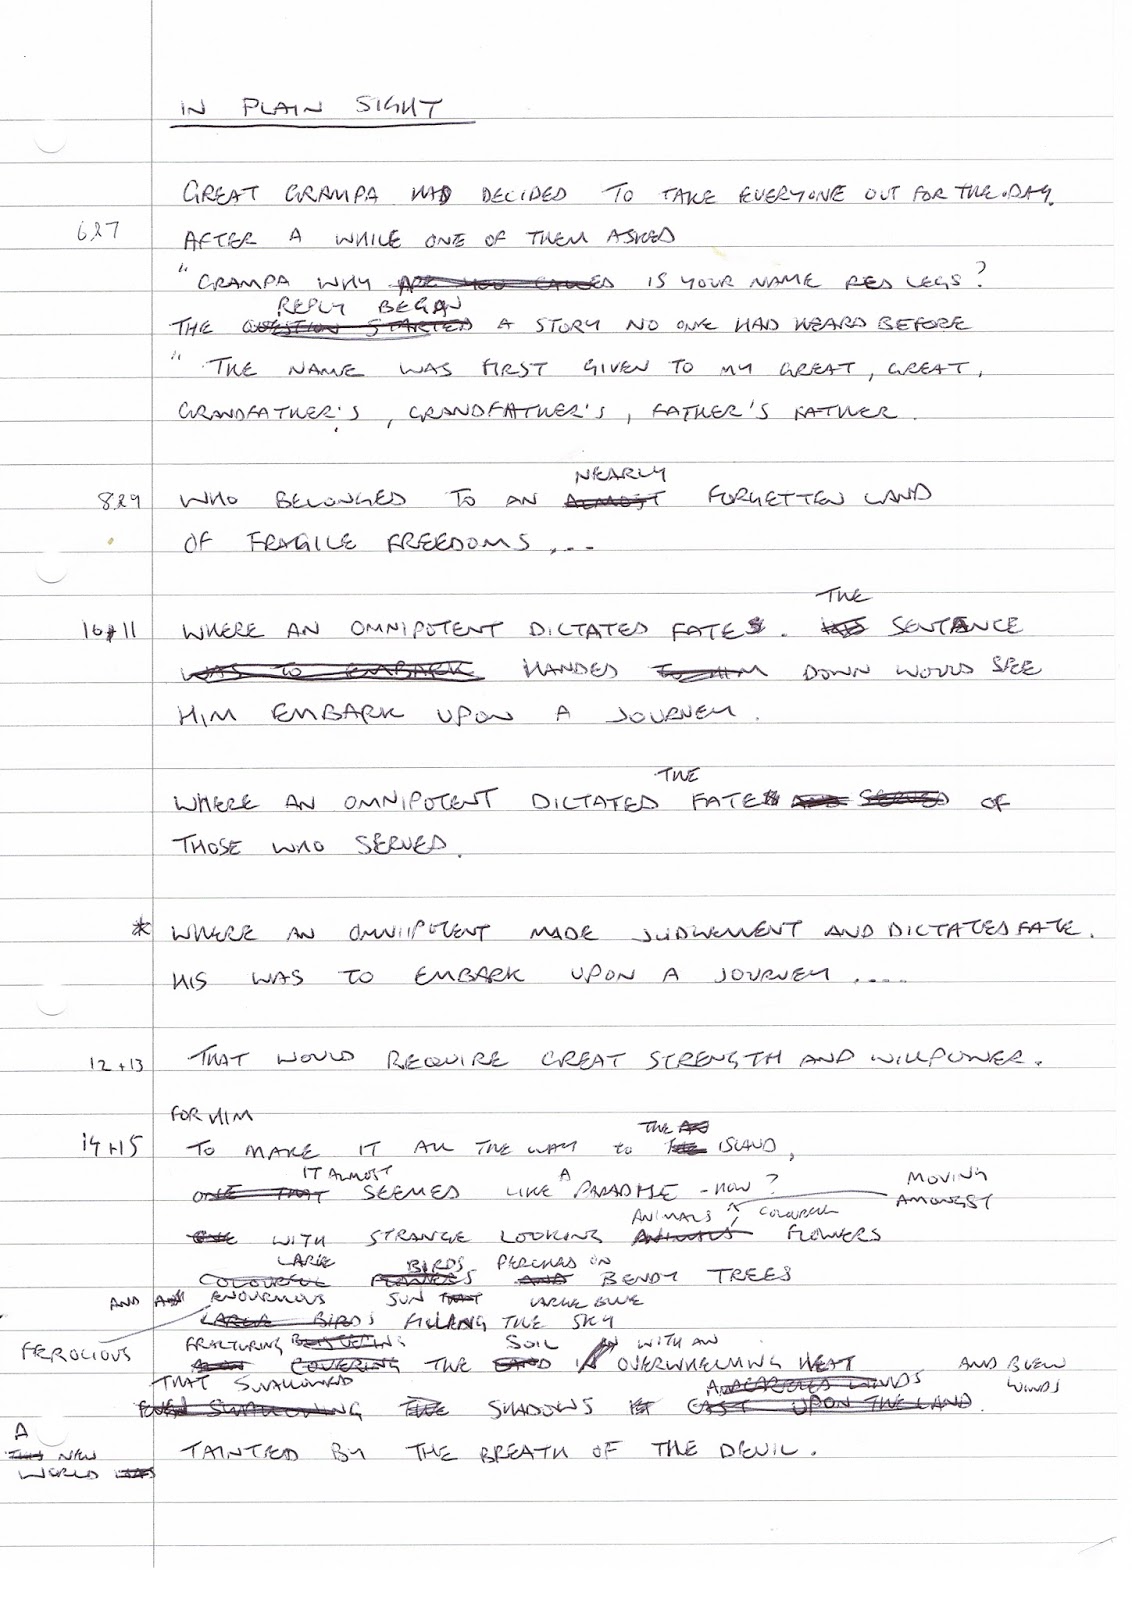 IN PLAIN SIGHT
GREAT GRAMPA HAD DECIDED TO TAKE EVERYONE OUT FOR THE DAY.
6&7 AFTER A WHILE ONE OF THEM ASKED
"GRAMPA WHY ARE YOU CALLED IS YOUR NAME RED LEGS?
REPLY BEGAN
THE QUESTION STARTED A STORY NO ONE HAD HEARD BEFORE
" THE NAME WAS FIRST GIVEN TO MY GREAT, GREAT,
GRANDFATHER'S, GRANDFATHER'S, FATHER'S FATHER.
NEARLY
8&9 WHO BELONGED TO AN ALMOST FORGETTEN LAND
OF FRAGILE FREEDOMS,...
THE
10+11 WHERE AN OMNIPOTENT DICTATED FATES. HIS SENTANCE
WAS TO EMBARK HANDED TO HIM DOWN WOULD SEE
HIM EMBARK UPON A JOURNEY.
THE
WHERE AN OMNIPOTENT DICTATED FATES AND SERVED OF
THOSE WHO SERVED.
* WHERE AN OMNIIPOTENT MADE JUDWEMENT AND DICTATED FATE.
HIS WAS TO EMBARK UPON A JOURNEY ....
12+13 THAT WOULD REQUIRE GREAT STRENGTH AND WILLPOWER.
FOR HIM
THE
14+15 TO MAKE IT ALL THE WAY TO THE ISLAND,
IT ALMOST A MOVING
ONE THAT SEEMED LIKE PARADISE - HOW? AMONGST
ANIMALS COLOURFUL
ONE WITH STRANGE LOOKING ANIMALS FLOWERS
LARGE BIRDS PERCHED ON
COLOURFUL FLOWERS AND BENDY TREES
AND ENOURMOUS SUN THAT LARGE BLUE
LARGE BIRDS FILLING THE SKY
FEROCIOUS FRACTURING SOIL WITH AN
COVERING THE LAND IN OVERWHELMING HEAT AND BLEW
THAT SWALLOWED WINDS
EVEN SWALLOWING THE SHADOWS IT CAST UPON THE LAND.
A
THIS NEW TAINTED BY THE BREATH OF THE DEVIL.
WORLD WAS